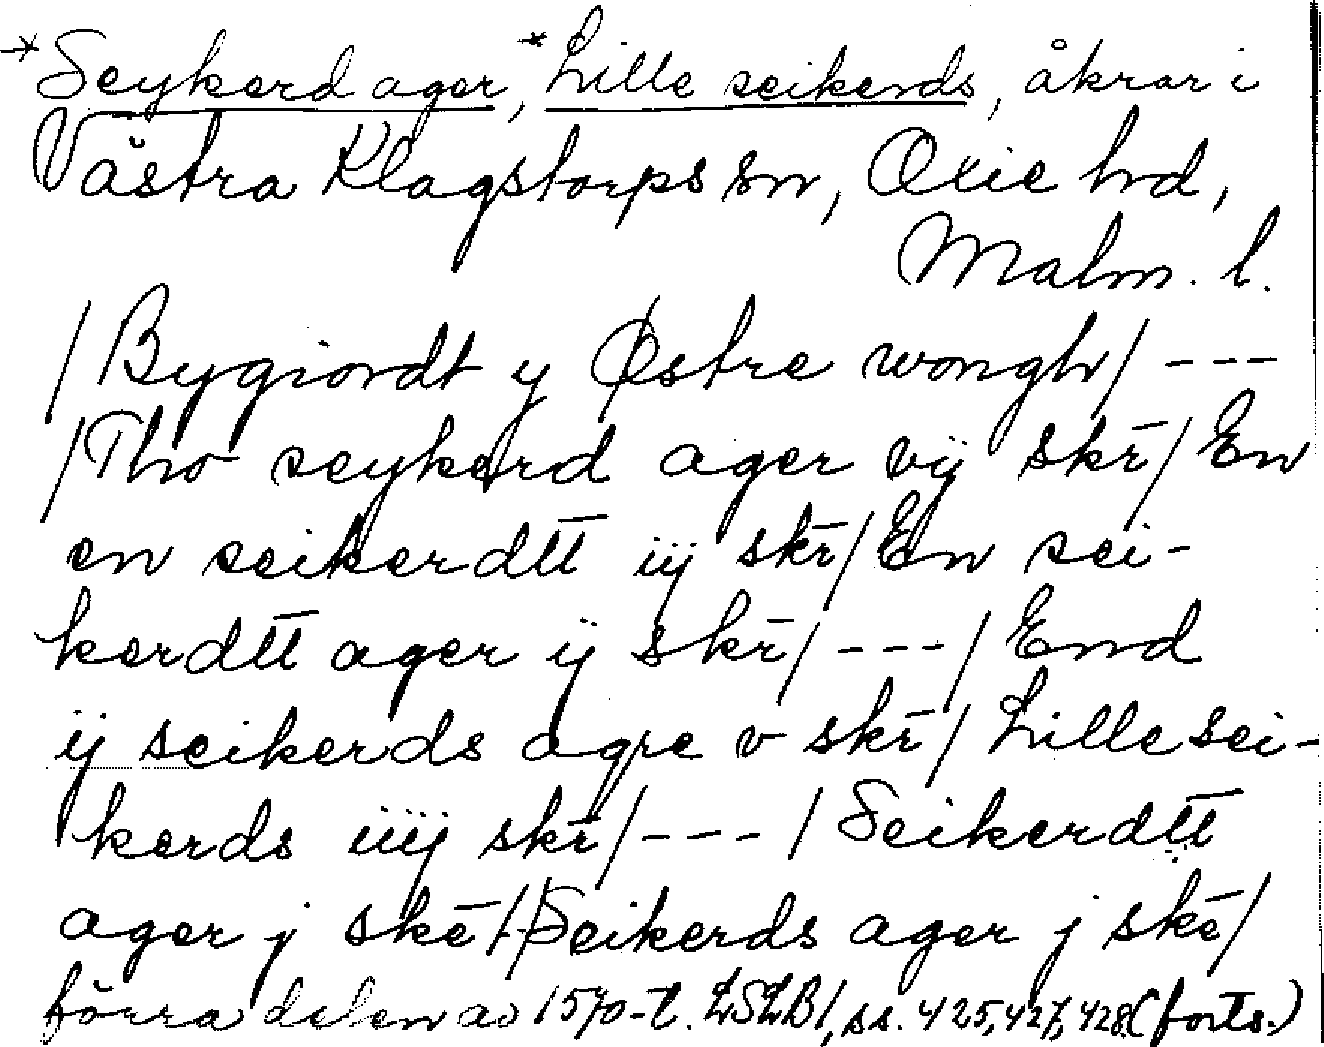 *Seykerd ager, *Lille seikerds, åkrar i
Västra Klagstorps sn, Oxie hd,
Malm. l.
/Bygiordt y Østre wongh/ ---
/Tho seykerd ager vij skr̄/ En
en seikerdtt̄ iij skr̄/ En sei-
kerdtt̄ ager ij skr̄/ ---/ End
ij seikerds agre v skr̄/ Lille sei-
kerds iiij skr̄/ --- / Seikerdtt̄
ager j skē/-/Seikerds ager j skē/
förra delen av 1570-t. LSLB 1, ss. 425, 427, 428 (forts.)